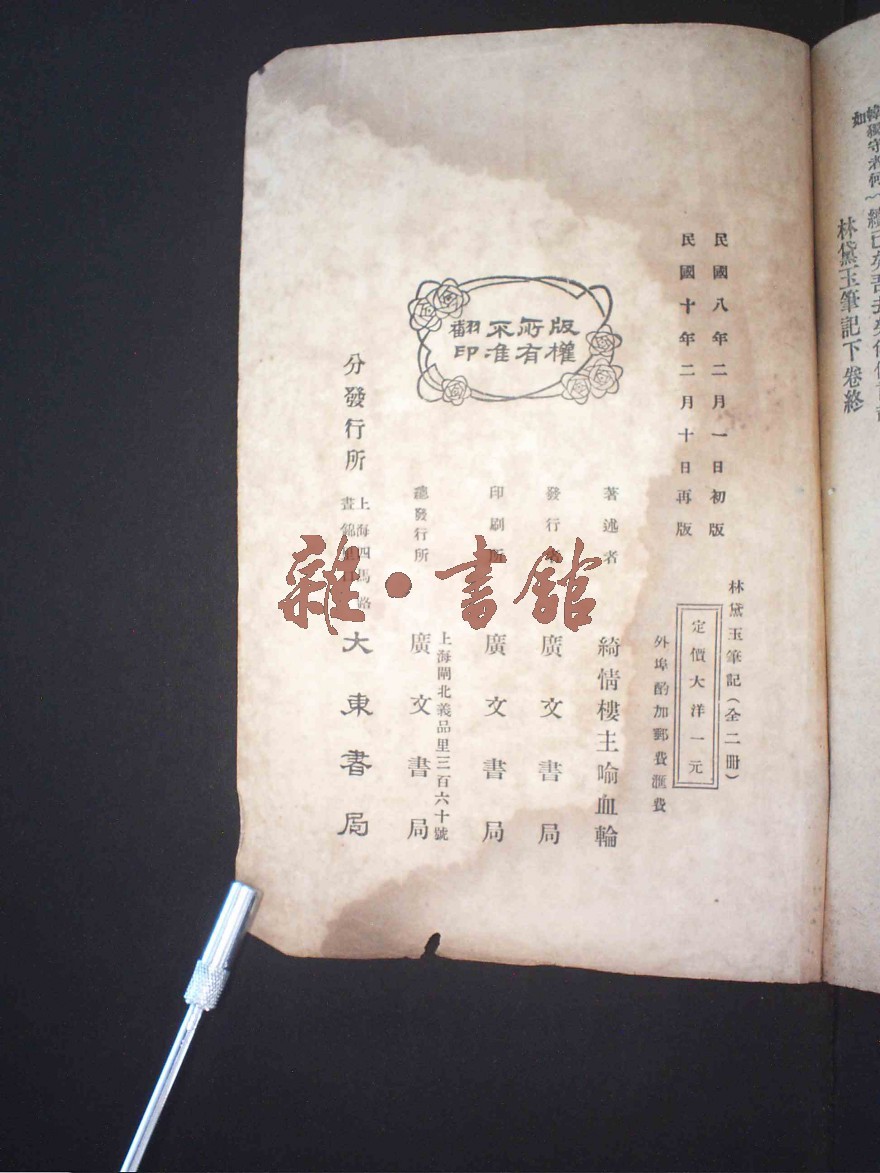 林黛玉筆記下卷終
民國八年二月一日初版
民國十年二月十日再版
版權所有
不准翻印
林黛玉筆記(全二冊)
定價大洋一元
外埠酌加郵費滙費
著述者 綺情樓主喻血輪
發行者 廣文書局
印刷所 廣文書局
總發行所 上海閘北義品里三百六十號
廣文書局
分發行所 上海四馬路
晝錦
大東書局
雜·書館